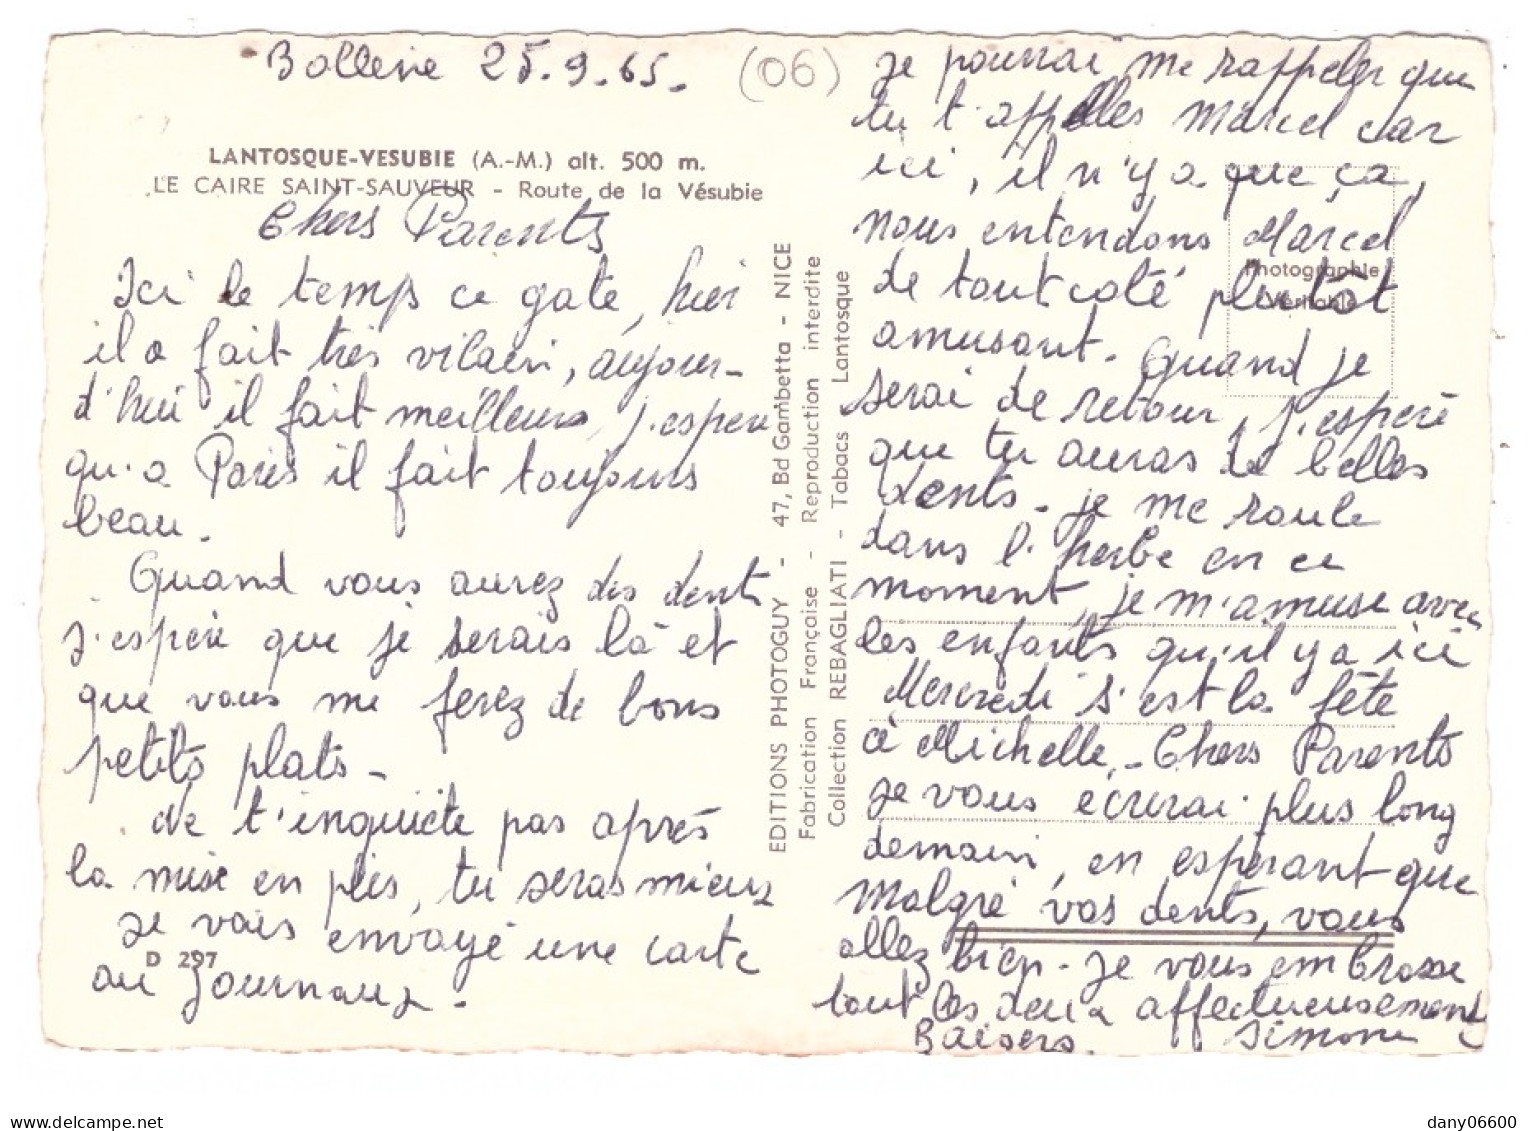 Bollène 25.9.65.
(06)
LANTOSQUE-VESUBIE (A.-M.) alt. 500 m.
LE CAIRE SAINT-SAUVEUR - Route de la Vésubie
Chers Parents
Ici le temps ce gate, hier
il a fait très vilain, aujour-
d'hui il fait meilleurs, j'espere
qu'a Paris il fait toujours
beau.
Quand vous aurez des dents
j'espère que je serais là et
que vous me ferez de bons
petits plats.
Ne t'inquiète pas après
la mise en plis, tu seras mieux
je vais envoyé une carte
au Journaux.
D 297
EDITIONS PHOTOGUY - 47, Bd Gambetta - NICE
Fabrication Française - Reproduction interdite
Collection REBAGLIATI - Tabacs Lantosque
je pourrai me rappeler que
tu t'appelles Marcel car
ici, il n'y a que ça,
nous entendons Marcel
de tout coté plutôt
amusant. Quand je
serai de retour, j'esperè
que tu auras de belles
dents. je me roule
dans l'herbe en ce
moment, je m'amuse avec
les enfants qu'il y a ici
Mercredi s'est la fête
à Michelle. Chers Parents
je vous ecrirai plus long
demain, en espérant que
malgré vos dents, vous
allez bien. Je vous embrasse
tout les deux affectueusement
Baisers. Simone
Photographie
Véritable
dany06600